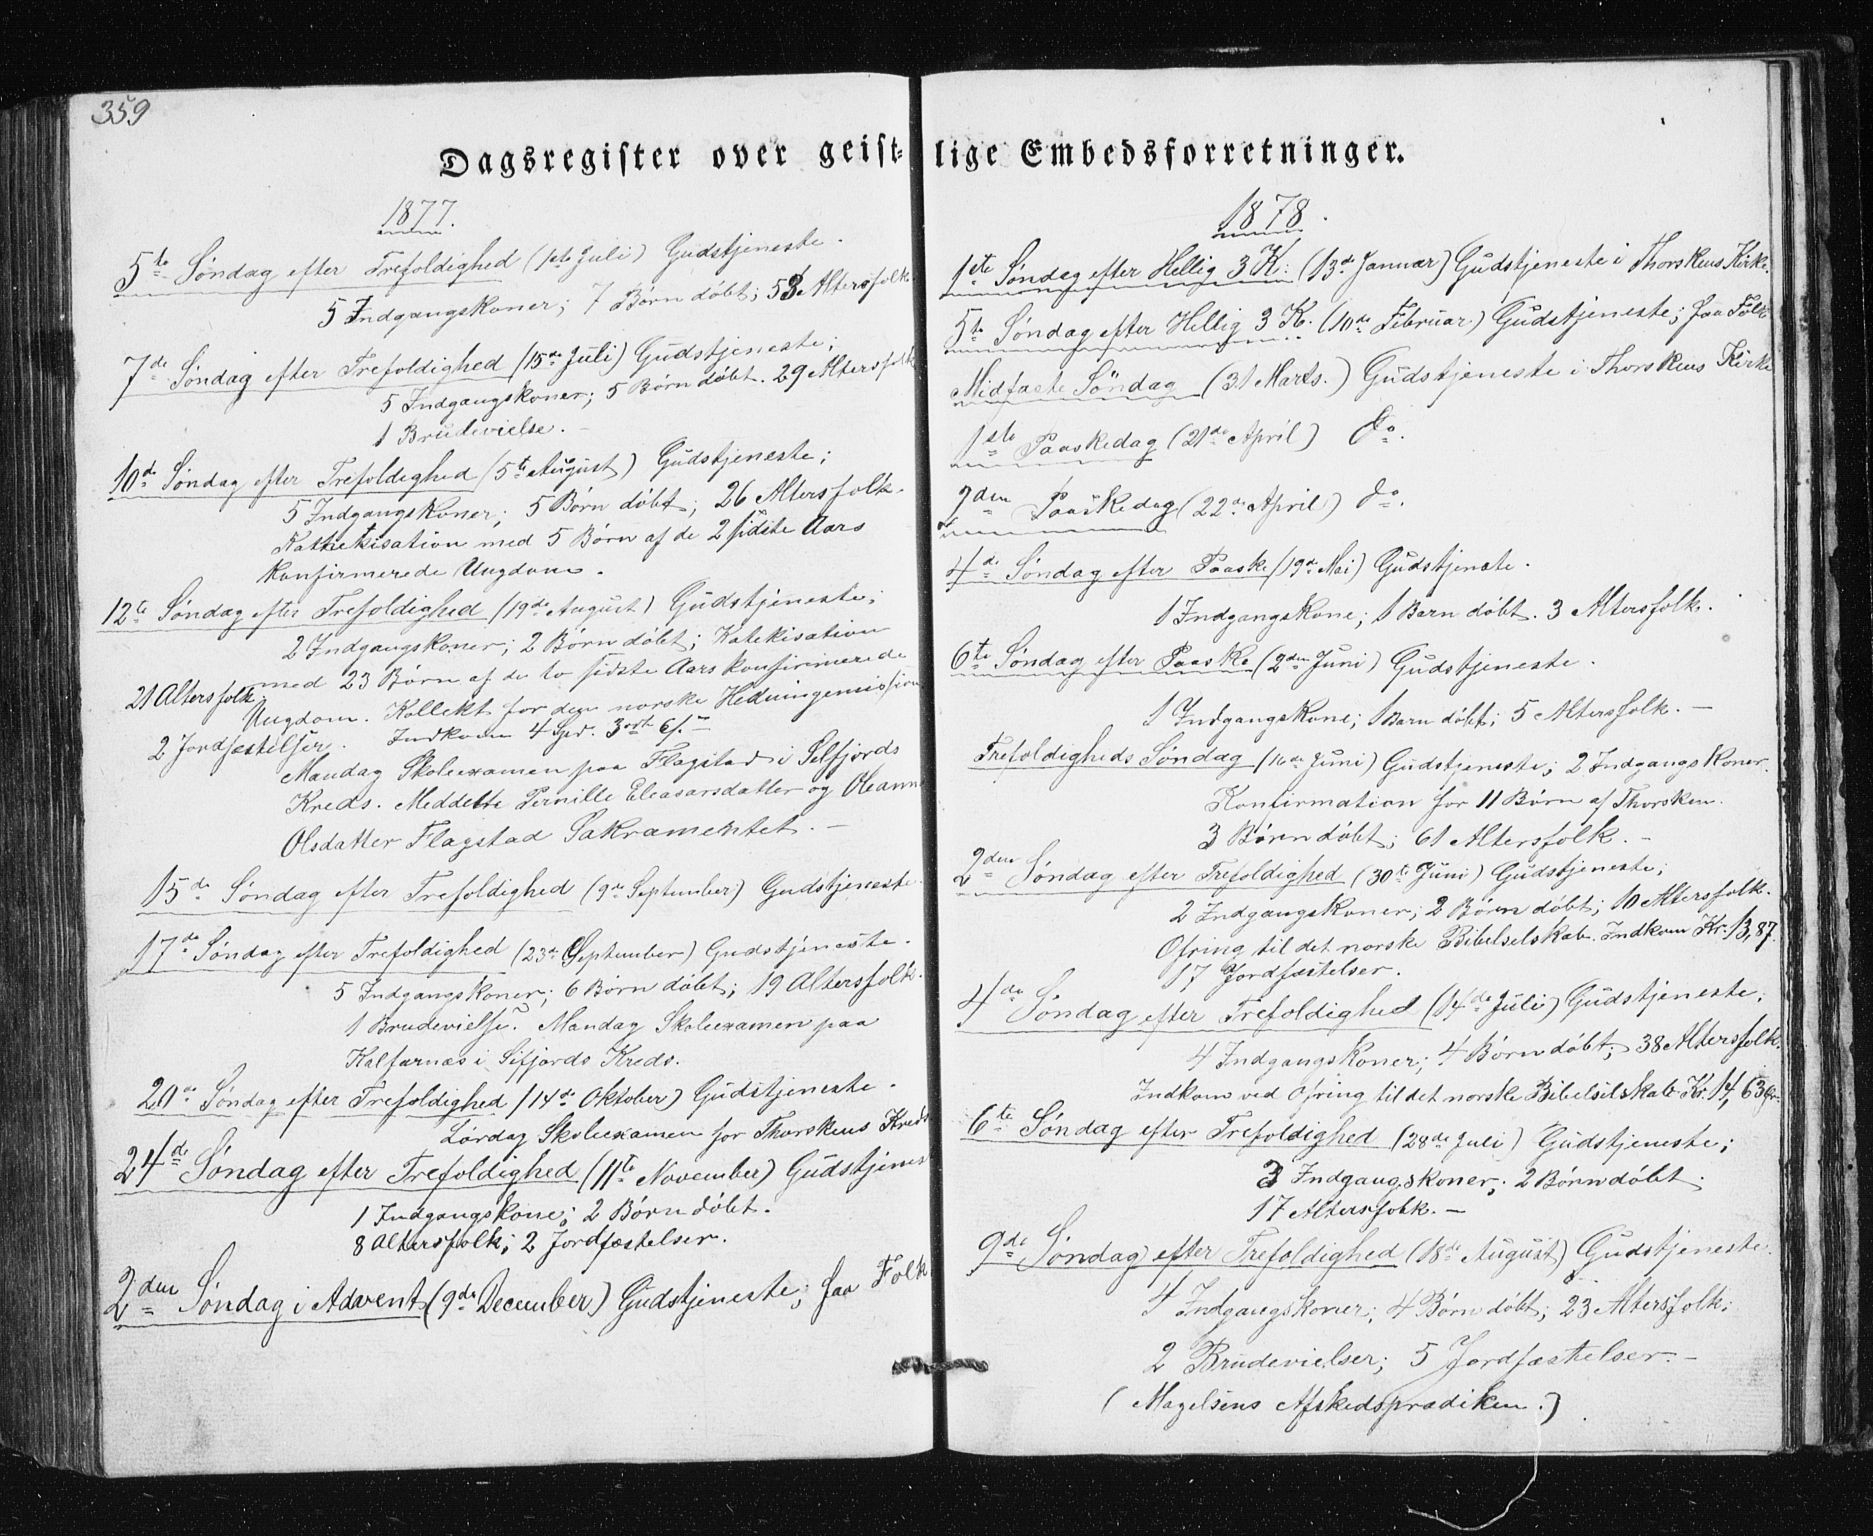 359
Dagsregister over geist-lige Embedsforretninger.
1877.
5te Søndag efter Trefoldighed (1ste Juli) Gudstjeneste.
5 Indgangskoner; 7 Børn døbt; 53 Altersfolk.
7de Søndag efter Trefoldighed (15de Juli) Gudstjeneste;
5 Indgangskoner; 5 Børn døbt. 29 Altersfolk
1 Brudevielse. -
10de Søndag efter Trefoldighed (5te August) Gudstjeneste;
5 Indgangskoner; 5 Børn døbt; 26 Altersfolk.
Kattekisation med 5 Børn af de 2 sidste Aars
konfirmerede Ungdom.
12te Søndag efter Trefoldighed (19de August) Gudstjeneste;
2 Indgangskoner; 2 Børn døbt; Katekisation
med 23 Børn af de to sidste Aars konfirmerede
21 Altersfolk;
Ungdom. Kollekt for den norske Hedningemission
2 Jordfæstelser. Indkom 4 Spd. 3 ort 6 s. -
Mandag Skoleexamen paa Flagstad i Selfjords
Kreds. Meddelte Pernille Eleasarsdatter og Oleanna
Olsdatter Flagstad Sakramentet. -
15de Søndag efter Trefoldighed (9de September) Gudstjeneste.
17de Søndag efter Trefoldighed (23de September) Gudstjeneste.
5 Indgangskoner; 6 Børn døbt; 19 Altersfolk.
1 Brudevielse. Mandag Skoleexamen paa
Kalfarnæs i Sifjords Kreds.
20de Søndag efter Trefoldighed (14de Oktober) Gudstjeneste.
Lørdag Skoleexamen for Thorskens Kreds
24de Søndag efter Trefoldighed (11te November) Gudstjenes
1 Indgangskone; 2 Børn døbt.
8 Altersfolk; 2 Jordfæstelser.
2den Søndag i Advent (9de December) Gudstjeneste; faa Folk
1878.
1ste Søndag efter Hellig 3 K. (13de Januar) Gudstjeneste i Thorskens Kirke.
5te Søndag efter Hellig 3 K. (10de Februar) Gudstjeneste; faa Folk
Midfaste Søndag (31 Marts.) Gudstjeneste i Thorskens Kirke
1ste Paaskedag (21de April) do.
2den Paaskedag (22de April) do.
4de Søndag efter Paaske (19de Mai) Gudstjeneste.
1 Indgangskone; 1 Barn døbt. 3 Altersfolk.
6te Søndag efter Paaske (2den Juni) Gudstjeneste.
1 Indgangskone; 1 Barn døbt; 5 Altersfolk. -
Trefoldigheds Søndag (16de Juni) Gudstjeneste; 2 Indgangskoner.
Konfirmation for 11 Børn af Thorsken.
3 Børn døbt; 61 Altersfolk. -
2den Søndag efter Trefoldighed (30te Juni) Gudstjeneste;
2 Indgangskoner; 2 Børn døbt; 10 Altersfolk.
Ofring til det norske Bibelselskab. Indkom Kr. 13,87.
17 Jordfæstelser.
4de Søndag efter Trefoldighed (14de Juli) Gudstjeneste;
4 Indgangskoner; 4 Børn døbt; 38 Altersfolk.
Indkom ved Ofring til det norske Bibelselskab Kr. 14,63
6te Søndag efter Trefoldighed (28de Juli) Gudstjeneste;
3 Indgangskoner; 2 Børn døbt.
17 Altersfolk. -
9de Søndag efter Trefoldighed (18de August) Gudstjeneste.
4 Indgangskoner; 4 Børn døbt; 23 Altersfolk;
2 Brudevielser; 5 Jordfæstelser. -
(Magelsens Afskedsprædiken.)